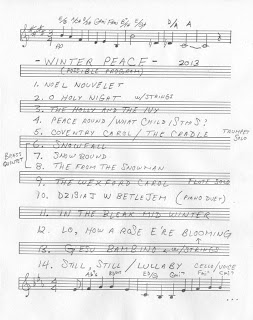 D/A A
- WINTER PEACE - 2013
(POSSIBLE PROGRAM)
1. NOEL NOUVELET
2. O HOLY NIGHT W/STRINGS
3. THE HOLLY AND THE IVY
4. PEACE ROUND / WHAT CHILD IS THIS?
5. COVENTRY CAROL / THE CRADLE TRUMPET SOLO
6. SNOWFALL
BRASS QUINTET
7. SNOWBOUND
8. THE FROM THE SNOWMAN
9. THE WEXFORD CAROL FLUTE SOLO
10. DZISIAJ W BETLEJEM (PIANO DUET)
11. IN THE BLEAK MID WINTER
12. LO, HOW A ROSE E'RE BLOOMING
13. GESU BAMBINO W/STRINGS
14. STILL, STILL / LULLABY CELLO/VOICE
...